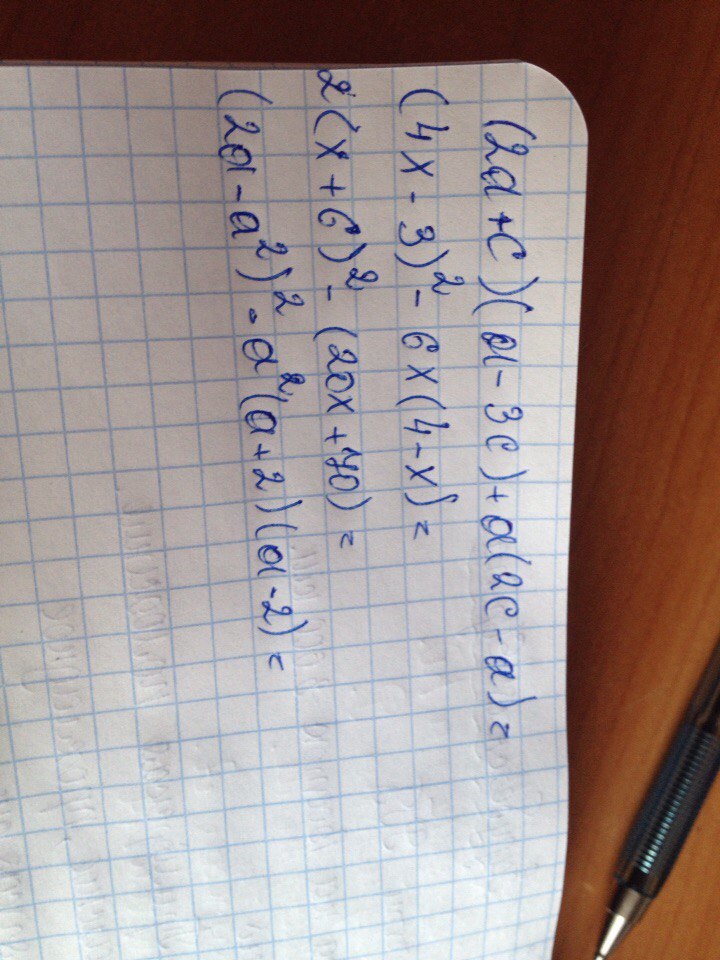 (2a+c)(a-3c)+a(2c-a)=
(4x-3)²-6x(4-x)=
2(x+6)²-(20x+70)=
(2a-a²)²-a²(a+2)(a-2)=